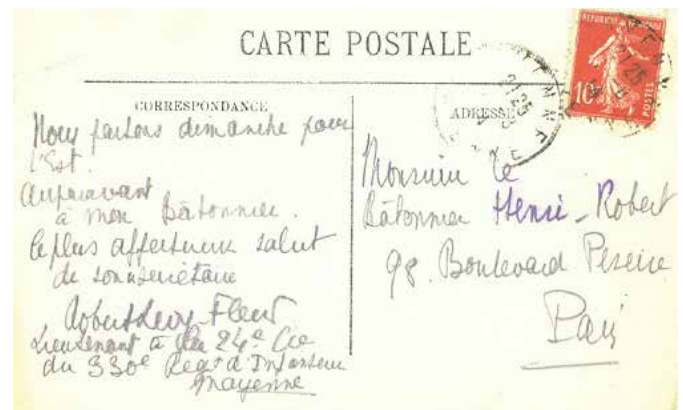 CARTE POSTALE
CORRESPONDANCE
Nous partons dimanche pour
l'Est.
Auparavant
à mon Bâtonnier.
le plus affectueux salut
de son secrétaire
Robert Leroy-Fleur
Lieutenant à la 24e Cie
du 330e Regt d'Infanterie
Mayenne
ADRESSE
Monsieur le
Bâtonnier Henri-Robert
98. Boulevard Pereire
Paris
REPUBLIQUE
10c
POSTES
21 25